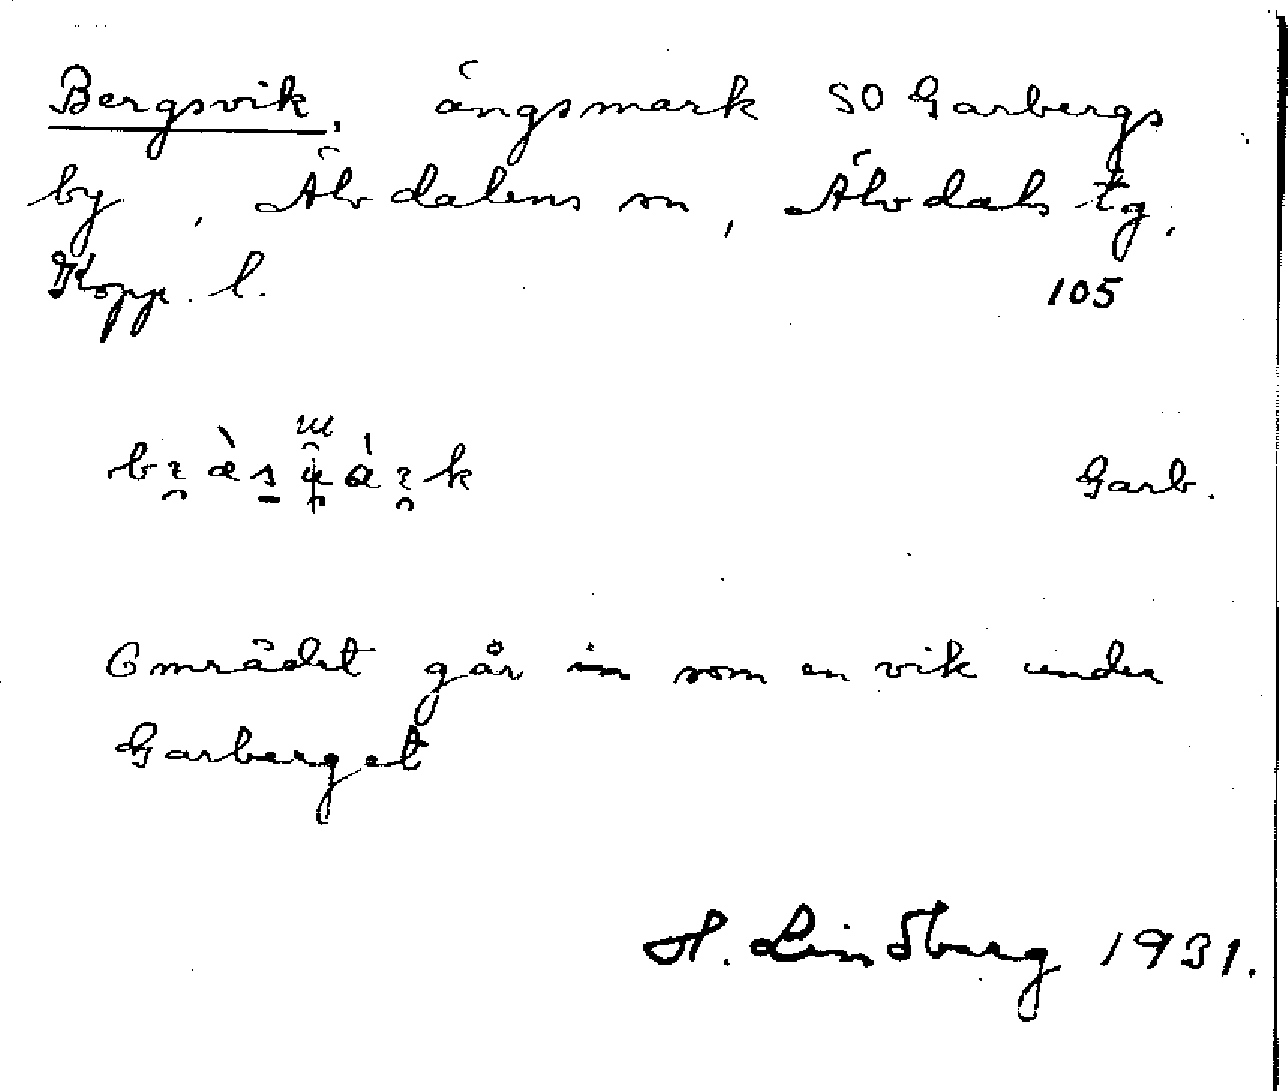 Bergsvik, ängsmark SO Garbergs
by, Älvdalens sn, Älvdals tg.
Kopp. l. 105
Garb.
Området går in som en vik under
Garberget
H. Lindberg 1931.